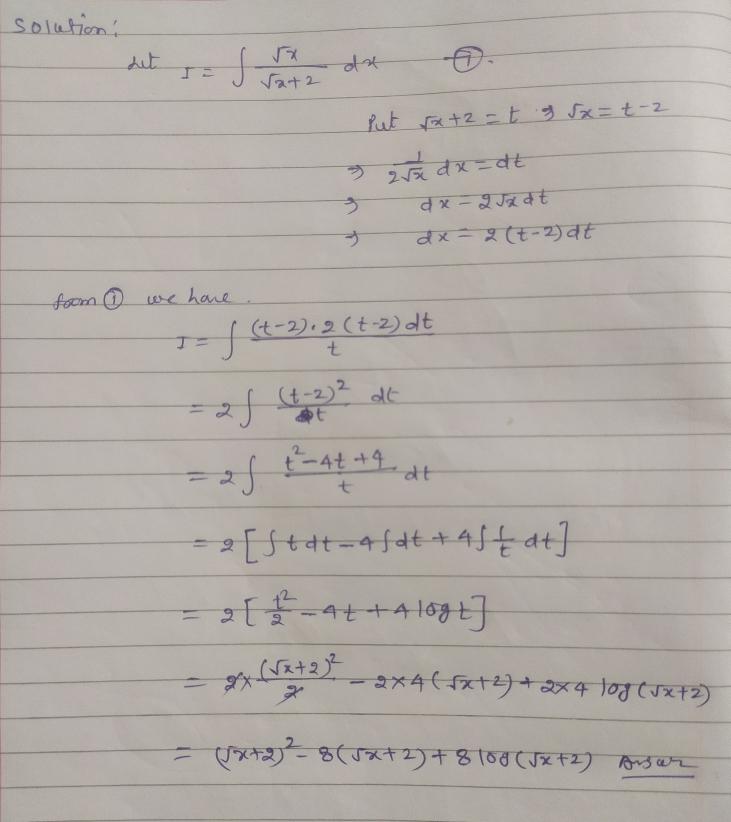 Solution:
Let I = ∫ √x / (√x+2) dx —①.
Put √x+2 = t ⇒ √x = t-2
⇒ 1/(2√x) dx = dt
⇒ dx = 2√x dt
⇒ dx = 2(t-2)dt
from ① we have.
I = ∫ (t-2).2(t-2)dt / t
= 2∫ (t-2)² / t dt
= 2∫ (t²-4t+4) / t dt
= 2[∫t dt - 4∫dt + 4∫ 1/t dt]
= 2[t²/2 - 4t + 4 log t]
= 2× (√x+2)²/2 - 2×4(√x+2) + 2×4 log(√x+2)
= (√x+2)² - 8(√x+2) + 8 log(√x+2) Answer